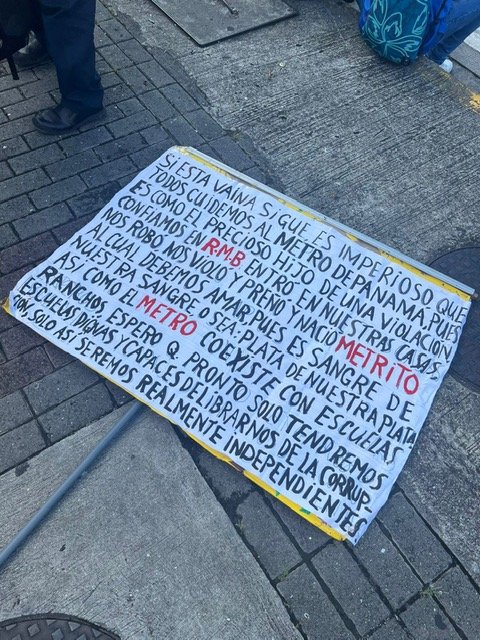 SI ESTA VAINA SIGUE ES IMPERIOSO QUE
TODOS CUIDEMOS AL METRO DE PANAMA, PUES
ES COMO EL PRECIOSO HIJO DE UNA VIOLACIÓN
CONFIAMOS EN R.M.B. ENTRO EN NUESTRAS CASAS
NOS ROBO NOS VIOLO Y PREÑO, Y NACIO METRITO
AL CUAL DEBEMOS AMAR, PUES ES SANGRE DE
NUESTRA SANGRE O SEA: PLATA DE NUESTRA PLATA
ASI COMO EL METRO COEXISTE CON ESCUELAS
RANCHOS, ESPERO Q. PRONTO SOLO TENDREMOS
ESCUELAS DIGNAS Y CAPACES DE LIBRARNOS DE LA CORRUP-
CION, SOLO ASI SEREMOS REALMENTE INDEPENDIENTES